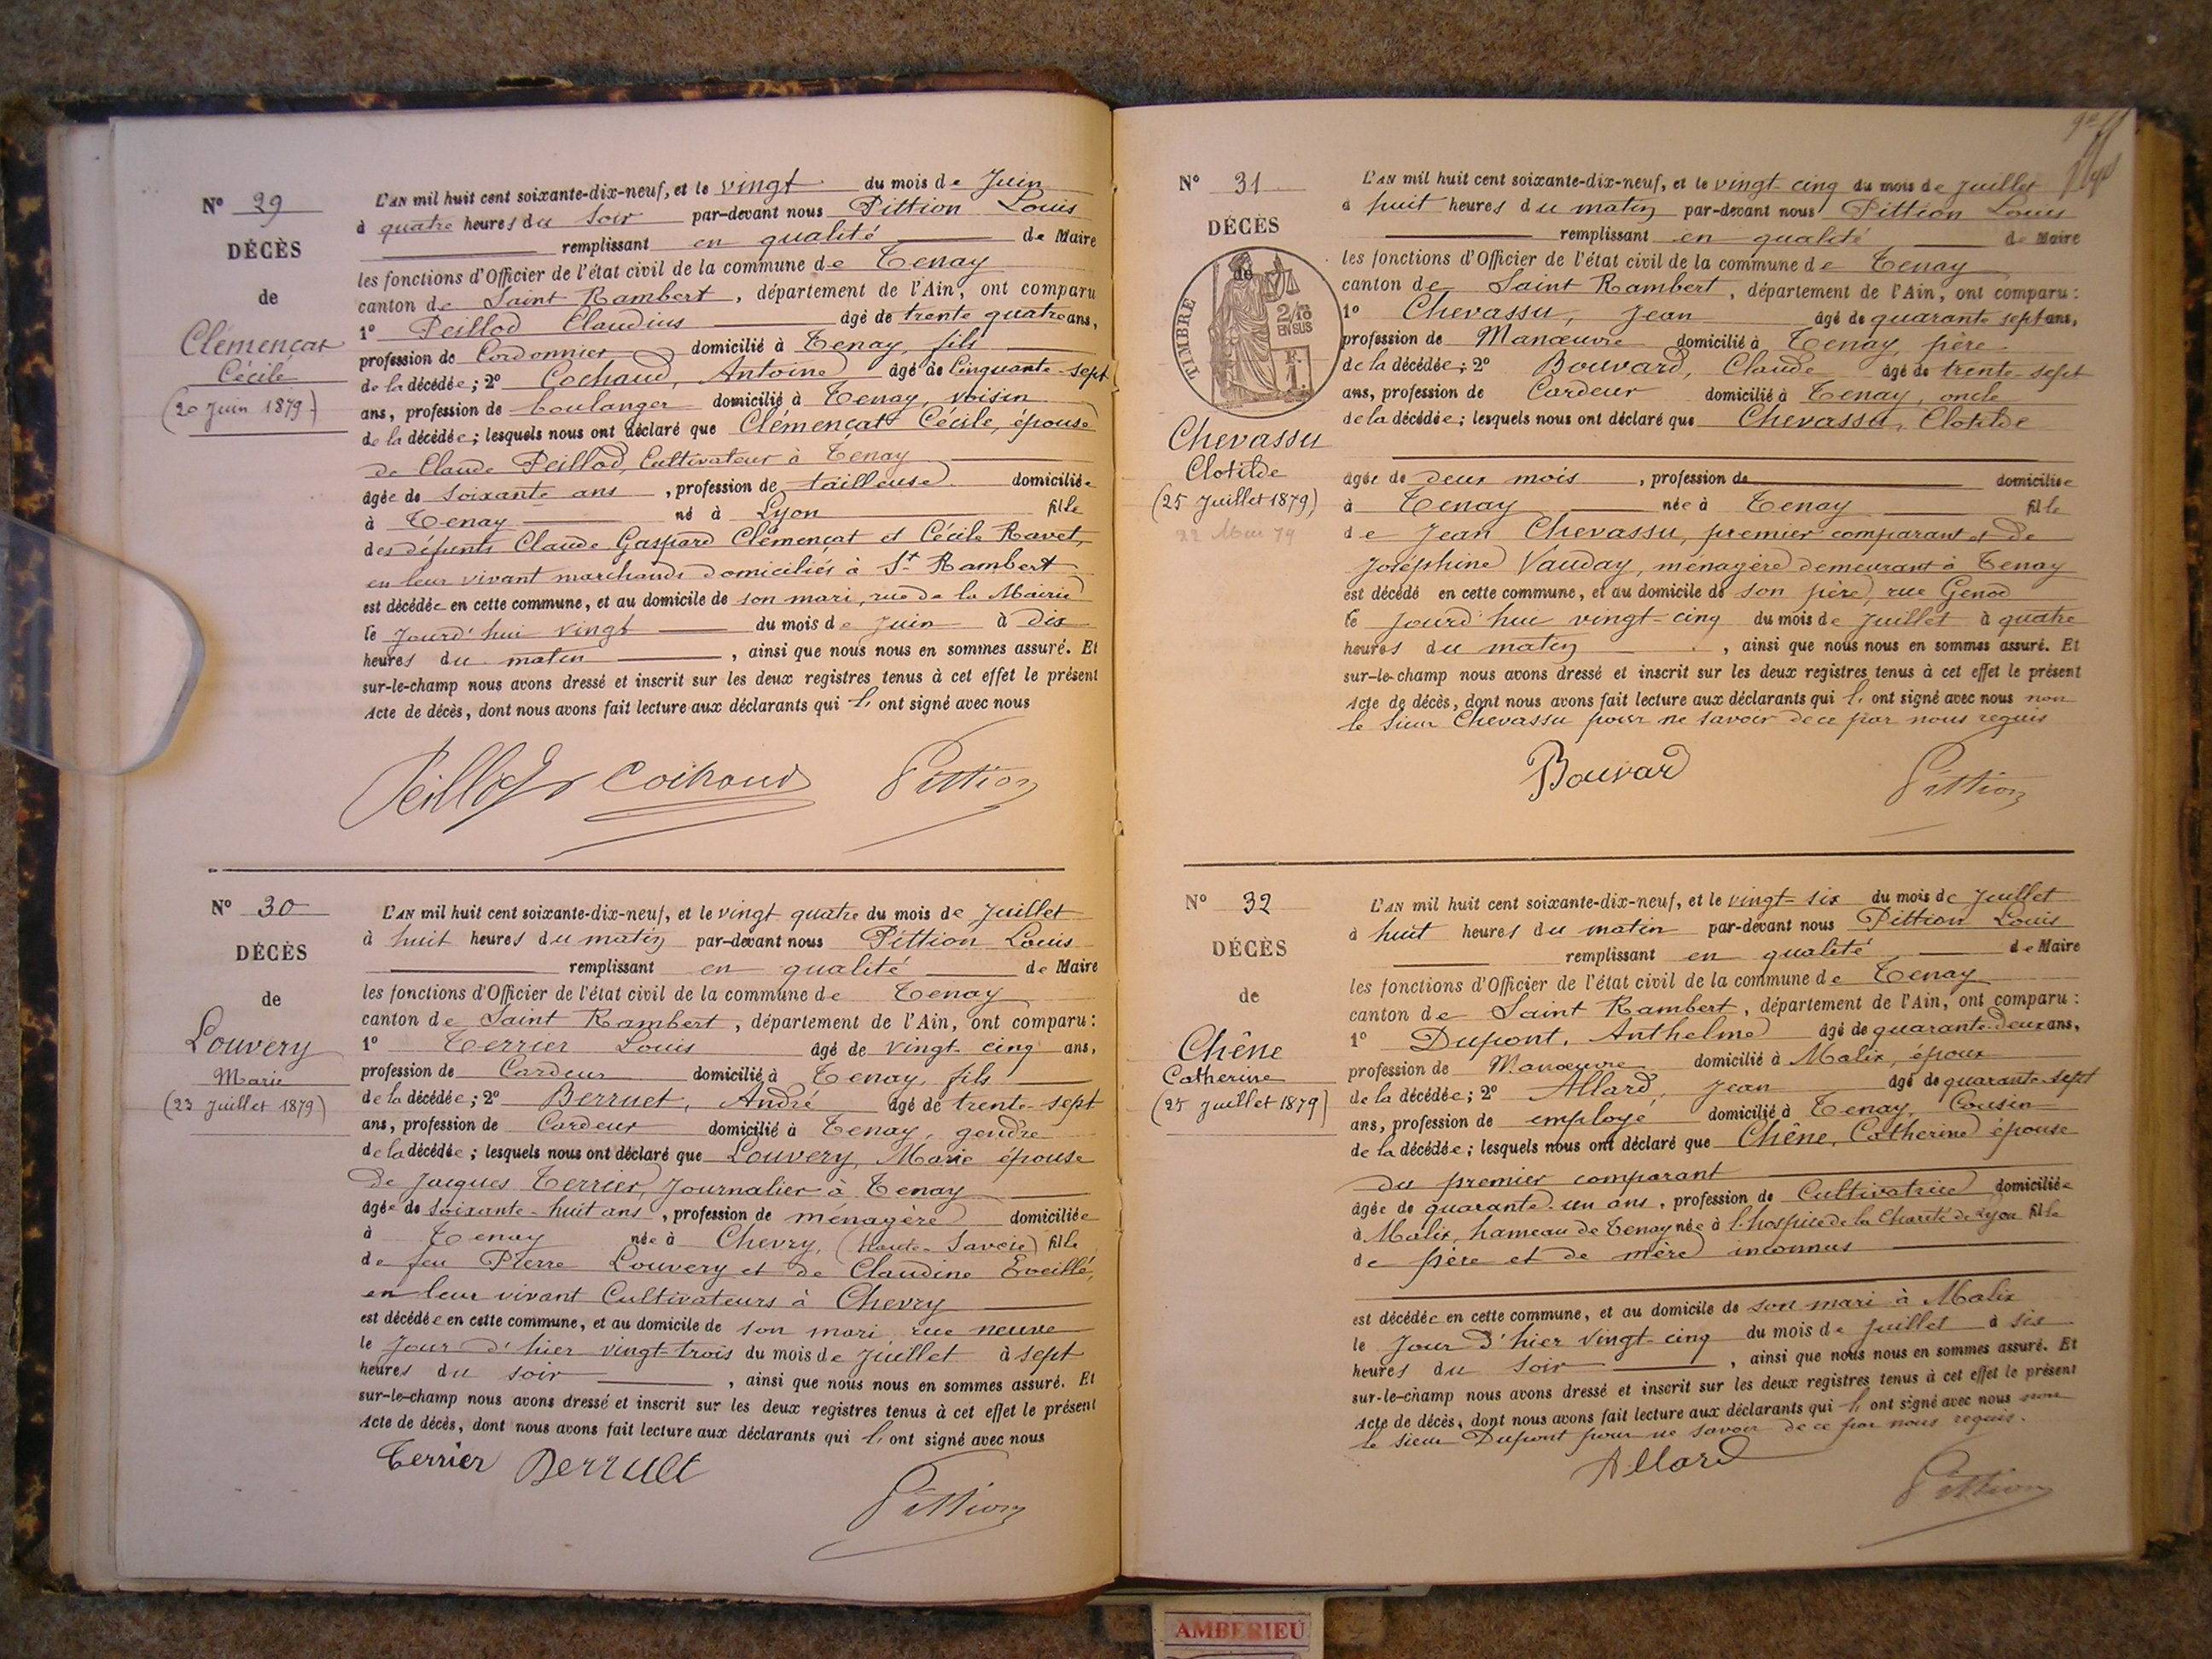 N° 29
DÉCÈS
de
Clémençat
Cécile
(20 Juin 1879)
L'AN mil huit cent soixante-dix-neuf, et le vingt du mois de Juin
à quatre heures du soir par-devant nous Pittion Louis
remplissant en qualité de Maire
les fonctions d'Officier de l'état civil de la commune de Tenay
canton de Saint Rambert, département de l'Ain, ont comparu
1° Peillod Claudius âgé de trente quatre ans,
profession de Cordonnier domicilié à Tenay, fils
de la décédée; 2° Cochaud, Antoine âgé de Cinquante-sept
ans, profession de boulanger domicilié à Tenay, voisin
de la décédée; lesquels nous ont déclaré que Clémençat Cécile, épouse
de Claude Peillod, Cultivateur à Tenay
âgée de soixante ans, profession de tailleuse domiciliée
à Tenay né à Lyon fille
des défunts Claude Gaspard Clémençat et Cécile Ravet,
en leur vivant marchands domiciliés à St Rambert
est décédée en cette commune, et au domicile de son mari, rue de la Mairie
le jourd'hui vingt du mois de Juin à dix
heures du matin, ainsi que nous nous en sommes assuré. Et
sur-le-champ nous avons dressé et inscrit sur les deux registres tenus à cet effet le présent
Acte de décès, dont nous avons fait lecture aux déclarants qui l' ont signé avec nous
Peillod Cochaud Pittion
N° 30
DÉCÈS
de
Louvery
Marie
(23 Juillet 1879)
L'AN mil huit cent soixante-dix-neuf, et le vingt quatre du mois de Juillet
à huit heures du matin par-devant nous Pittion Louis
remplissant en qualité de Maire
les fonctions d'Officier de l'état civil de la commune de Tenay
canton de Saint Rambert, département de l'Ain, ont comparu :
1° Terrier Louis âgé de vingt-cinq ans,
profession de Cardeur domicilié à Tenay, fils
de la décédée; 2° Berruet, André âgé de trente-sept
ans, profession de Cardeur domicilié à Tenay, gendre
de la décédée; lesquels nous ont déclaré que Louvery, Marie épouse
de Jacques Terrier, Journalier à Tenay
âgée de soixante-huit ans, profession de ménagère domiciliée
à Tenay née à Chevry, (Haute-Savoie) fille
de feu Pierre Louvery et de Claudine Eveillé,
en leur vivant Cultivateurs à Chevry
est décédée en cette commune, et au domicile de son mari, rue neuve
le jour d'hier vingt-trois du mois de Juillet à sept
heures du soir, ainsi que nous nous en sommes assuré. Et
sur-le-champ nous avons dressé et inscrit sur les deux registres tenus à cet effet le présent
Acte de décès, dont nous avons fait lecture aux déclarants qui l' ont signé avec nous
Terrier Berruet
Pittion
N° 31
DÉCÈS
de
TIMBRE
2/10
EN SUS
F.
1.
Chevassu
Clotilde
(25 Juillet 1879)
L'AN mil huit cent soixante-dix-neuf, et le vingt-cinq du mois de Juillet
à huit heures du matin par-devant nous Pittion Louis
remplissant en qualité de Maire
les fonctions d'Officier de l'état civil de la commune de Tenay
canton de Saint Rambert, département de l'Ain, ont comparu :
1° Chevassu, Jean âgé de quarante sept ans,
profession de Manœuvre domicilié à Tenay, père
de la décédée; 2° Bouvard, Claude âgé de trente-sept
ans, profession de Cardeur domicilié à Tenay, oncle
de la décédée; lesquels nous ont déclaré que Chevassu, Clotilde
âgée de deux mois, profession de domiciliée
à Tenay née à Tenay fille
de Jean Chevassu, premier comparant et de
Joséphine Vauday, ménagère demeurant à Tenay
est décédé en cette commune, et au domicile de son père, rue Genod
le jourd'hui vingt-cinq du mois de Juillet à quatre
heures du matin, ainsi que nous nous en sommes assuré. Et
sur-le-champ nous avons dressé et inscrit sur les deux registres tenus à cet effet le présent
Acte de décès, dont nous avons fait lecture aux déclarants qui l' ont signé avec nous non
le sieur Chevassu pour ne savoir de ce par nous requis
Bouvard Pittion
N° 32
DÉCÈS
de
Chêne
Catherine
(25 Juillet 1879)
L'AN mil huit cent soixante-dix-neuf, et le vingt-six du mois de Juillet
à huit heures du matin par-devant nous Pittion Louis
remplissant en qualité de Maire
les fonctions d'Officier de l'état civil de la commune de Tenay
canton de Saint Rambert, département de l'Ain, ont comparu :
1° Dupont, Anthelme âgé de quarante-deux ans,
profession de Manoeuvre domicilié à Malix, époux
de la décédée; 2° Allard, Jean âgé de quarante-sept
ans, profession de employé domicilié à Tenay, Cousin
de la décédée; lesquels nous ont déclaré que Chêne, Catherine épouse
du premier comparant
âgée de quarante-un ans, profession de Cultivatrice domiciliée
à Malix, hameau de Tenay née à l'hospice de la Charité de Lyon fille
de père et de mère inconnus
est décédée en cette commune, et au domicile de son mari à Malix
le jour d'hier vingt-cinq du mois de Juillet à six
heures du soir, ainsi que nous nous en sommes assuré. Et
sur-le-champ nous avons dressé et inscrit sur les deux registres tenus à cet effet le présent
Acte de décès, dont nous avons fait lecture aux déclarants qui l' ont signé avec nous non
le sieur Dupont pour ne savoir de ce par nous requis.
Allard
Pittion
AMBERIEU